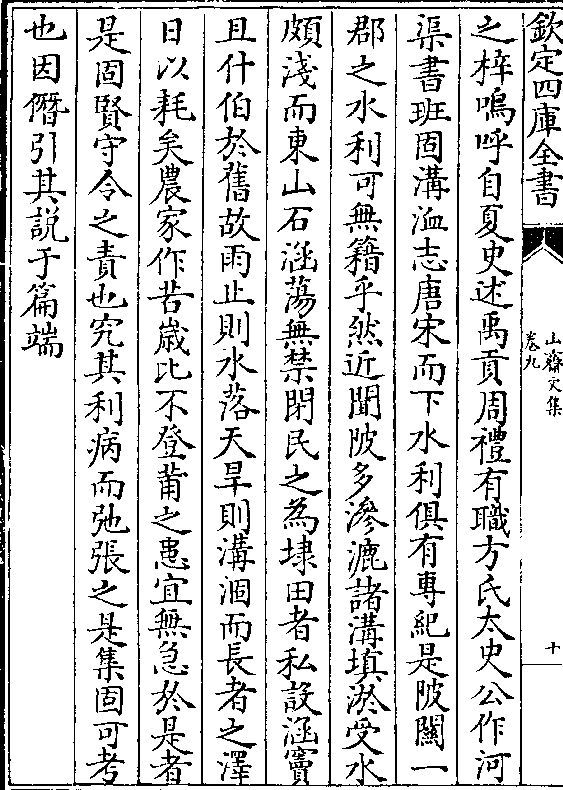 欽定四庫全書
山齋文集
卷九
十
之梓嗚呼自夏史述禹貢周禮有職方氏太史公作河
渠書班固溝洫志唐宋而下水利俱有專紀是陂關一
郡之水利可無籍乎然近聞陂多滲漉諸溝填淤受水
頗淺而東山石涵蕩無禁閉民之為埭田者私設涵竇
且什伯於舊故雨止則水落天旱則溝涸而長者之澤
日以耗矣農家作苦歲比不登莆之患宜無急於是者
是固賢守令之責也究其利病而弛張之是集固可考
也因僭引其説于篇端